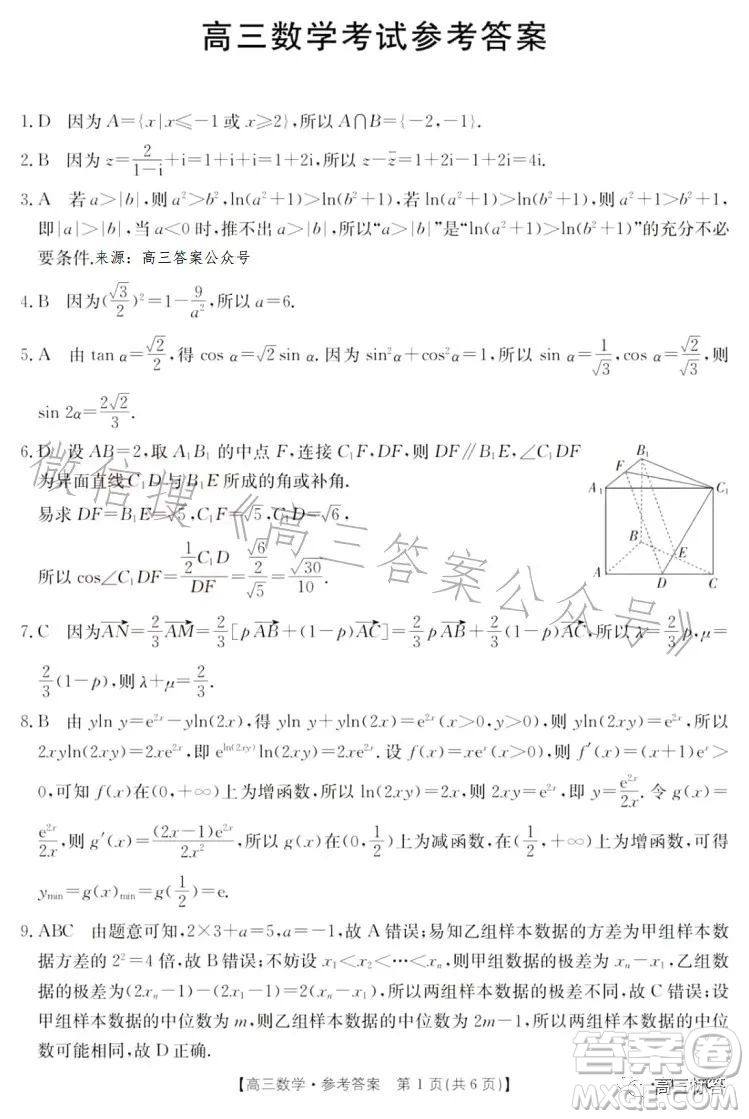 高三数学考试参考答案
1. D 因为 A={x|x≤-1 或 x≥2},所以 A∩B={-2,-1}.
2. B 因为 z=2/(1-i)+i=1+i+i=1+2i,所以 z-z̄=1+2i-1+2i=4i.
3. A 若 a>|b|,则 a²>b²,ln(a²+1)>ln(b²+1),若 ln(a²+1)>ln(b²+1),则 a²+1>b²+1,
即|a|>|b|,当 a<0 时,推不出 a>|b|,所以“a>|b|”是“ln(a²+1)>ln(b²+1)”的充分不必
要条件.来源：高三答案公众号
4. B 因为(√3/2)²=1-9/a²,所以 a=6.
5. A 由 tan α=√2/2,得 cos α=√2 sin α.因为 sin²α+cos²α=1,所以 sin α=1/√3,cos α=√2/√3,则
sin 2α=2√2/3.
6. D 设 AB=2,取 A₁B₁ 的中点 F,连接 C₁F,DF,则 DF∥B₁E,∠C₁DF
为异面直线 C₁D 与 B₁E 所成的角或补角.
易求 DF=B₁E=√5,C₁F=√5,C₁D=√6,
所以 cos∠C₁DF=(1/2 C₁D)/DF=(√6/2)/√5=√30/10.
B₁
F
A₁
C₁
B
E
A
D
C
7. C 因为AN→=2/3 AM→=2/3[pAB→+(1-p)AC→]=2/3 pAB→+2/3(1-p)AC→,所以 λ=2/3 p,μ=
2/3(1-p),则 λ+μ=2/3.
8. B 由 yln y=e²ˣ-yln(2x),得 yln y+yln(2x)=e²ˣ(x>0,y>0),则 yln(2xy)=e²ˣ,所以
2xyln(2xy)=2xe²ˣ,即 e^{ln(2xy)}ln(2xy)=2xe²ˣ.设 f(x)=xeˣ(x>0),则 f′(x)=(x+1)eˣ>
0,可知 f(x)在(0,+∞)上为增函数,所以 ln(2xy)=2x,则 2xy=e²ˣ,即 y=e²ˣ/2x.令 g(x)=
e²ˣ/2x,则 g′(x)=(2x-1)e²ˣ/2x²,所以 g(x)在(0,1/2)上为减函数,在(1/2,+∞)为增函数,可得
y_min=g(x)_min=g(1/2)=e.
9. ABC 由题意可知,2×3+a=5,a=-1,故 A 错误;易知乙组样本数据的方差为甲组样本数
据方差的 2²=4 倍,故 B 错误;不妨设 x₁<x₂<…<xₙ,则甲组样本数据的极差为 xₙ-x₁,乙组数
据的极差为(2xₙ-1)-(2x₁-1)=2(xₙ-x₁),所以两组样本数据的极差不同,故 C 错误;设
甲组样本数据的中位数为 m,则乙组样本数据的中位数为 2m-1,所以两组样本数据的中位
数可能相同,故 D 正确.
【高三数学·参考答案 第 1 页(共 6 页)】
微信搜《高三答案公众号》
答案卷
MXQE.COM
高三标答